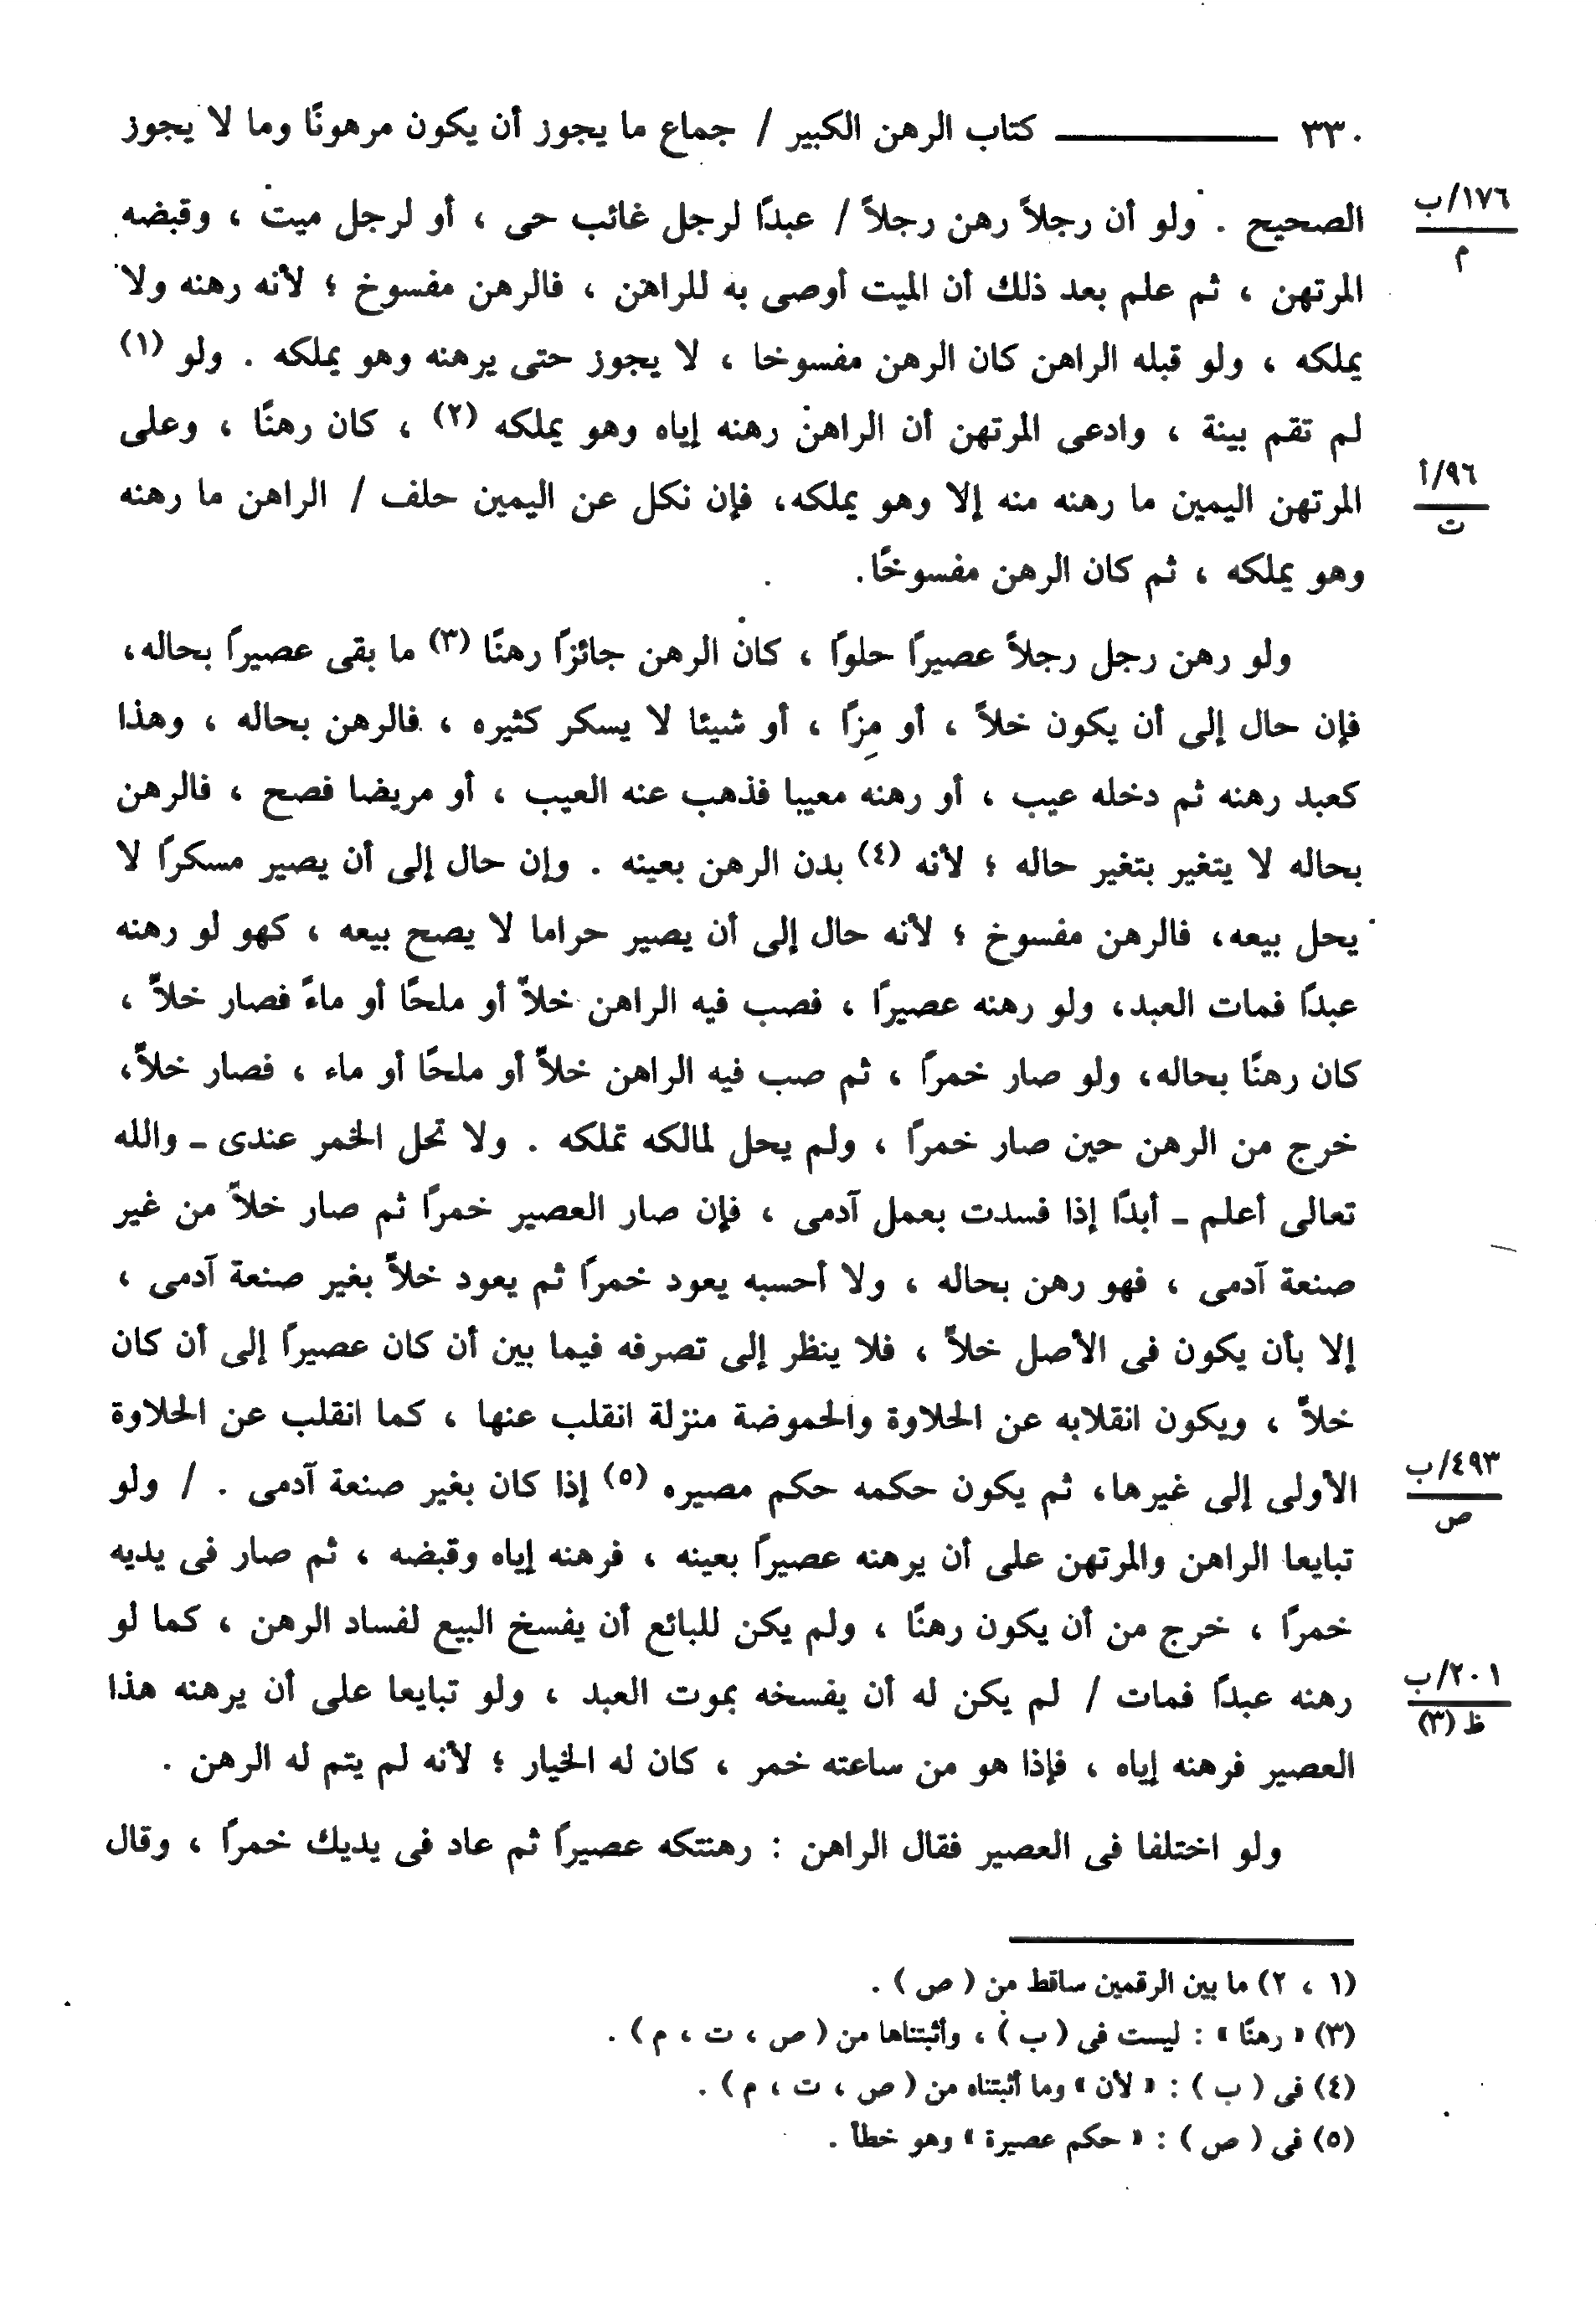 ٣٣٠ ــــــــــ كتاب الرهن الكبير / جماع ما يجوز أن يكون مرهونًا وما لا يجوز
الصحيح . ولو أن رجلاً رهن رجلاً / عبدًا لرجل غائب حى ، أو لرجل ميت ، وقبضه
١٧٦/ب
م
المرتهن ، ثم علم بعد ذلك أن الميت أوصى به للراهن ، فالرهن مفسوخ ؛ لأنه رهنه ولا
يملكه ، ولو قبله الراهن كان الرهن مفسوخا ، لا يجوز حتى يرهنه وهو يملكه . ولو (١)
لم تقم بينة ، وادعى المرتهن أن الراهن رهنه إياه وهو يملكه (٢) ، كان رهنًا ، وعلى
المرتهن اليمين ما رهنه منه إلا وهو يملكه، فإن نكل عن اليمين حلف / الراهن ما رهنه
٩٦/أ
ت
وهو يملكه ، ثم كان الرهن مفسوخًا.
ولو رهن رجل رجلاً عصيرًا حلوًا ، كان الرهن جائزًا رهنًا (٣) ما بقى عصيرًا بحاله،
فإن حال إلى أن يكون خلاً ، أو مِزًا ، أو شيئا لا يسكر كثيره ، فالرهن بحاله ، وهذا
كعبد رهنه ثم دخله عيب ، أو رهنه معيبا فذهب عنه العيب ، أو مريضا فصح ، فالرهن
بحاله لا يتغير بتغير حاله ؛ لأنه (٤) بدن الرهن بعينه . وإن حال إلى أن يصير مسكرًا لا
يحل بيعه، فالرهن مفسوخ ؛ لأنه حال إلى أن يصير حراما لا يصح بيعه ، كهو لو رهنه
عبدًا فمات العبد، ولو رهنه عصيرًا ، فصب فيه الراهن خلاً أو ملحًا أو ماءً فصار خلاً ،
كان رهنًا بحاله، ولو صار خمرًا ، ثم صب فيه الراهن خلاً أو ملحًا أو ماء ، فصار خلاً،
خرج من الرهن حين صار خمرًا ، ولم يحل لمالكه تملكه . ولا تحل الخمر عندى ـ والله
تعالى أعلم ـ أبدًا إذا فسدت بعمل آدمى ، فإن صار العصير خمرًا ثم صار خلاً من غير
صنعة آدمى ، فهو رهن بحاله ، ولا أحسبه يعود خمرًا ثم يعود خلاً بغير صنعة آدمى ،
إلا بأن يكون فى الأصل خلاً ، فلا ينظر إلى تصرفه فيما بين أن كان عصيرًا إلى أن كان
خلاً ، ويكون انقلابه عن الحلاوة والحموضة منزلة انقلب عنها ، كما انقلب عن الحلاوة
الأولى إلى غيرها، ثم يكون حكمه حكم مصيره (٥) إذا كان بغير صنعة آدمى . / ولو
٤٩٣/ب
ص
تبايعا الراهن والمرتهن على أن يرهنه عصيرًا بعينه ، فرهنه إياه وقبضه ، ثم صار فى يديه
خمرًا ، خرج من أن يكون رهنًا ، ولم يكن للبائع أن يفسخ البيع لفساد الرهن ، كما لو
رهنه عبدًا فمات / لم يكن له أن يفسخه بموت العبد ، ولو تبايعا على أن يرهنه هذا
٢٠١/ب
ظ (٣)
العصير فرهنه إياه ، فإذا هو من ساعته خمر ، كان له الخيار ؛ لأنه لم يتم له الرهن .
ولو اختلفا فى العصير فقال الراهن : رهنتكه عصيرًا ثم عاد فى يديك خمرًا ، وقال
(١ ، ٢) ما بين الرقمين ساقط من ( ص ) .
(٣) « رهنًا » : ليست فى ( ب ) ، وأثبتناها من ( ص ، ت ، م ) .
(٤) فى ( ب ) : « لأن » وما أثبتناه من ( ص ، ت ، م ) .
(٥) فى ( ص ) : « حكم عصيرة » وهو خطأ .